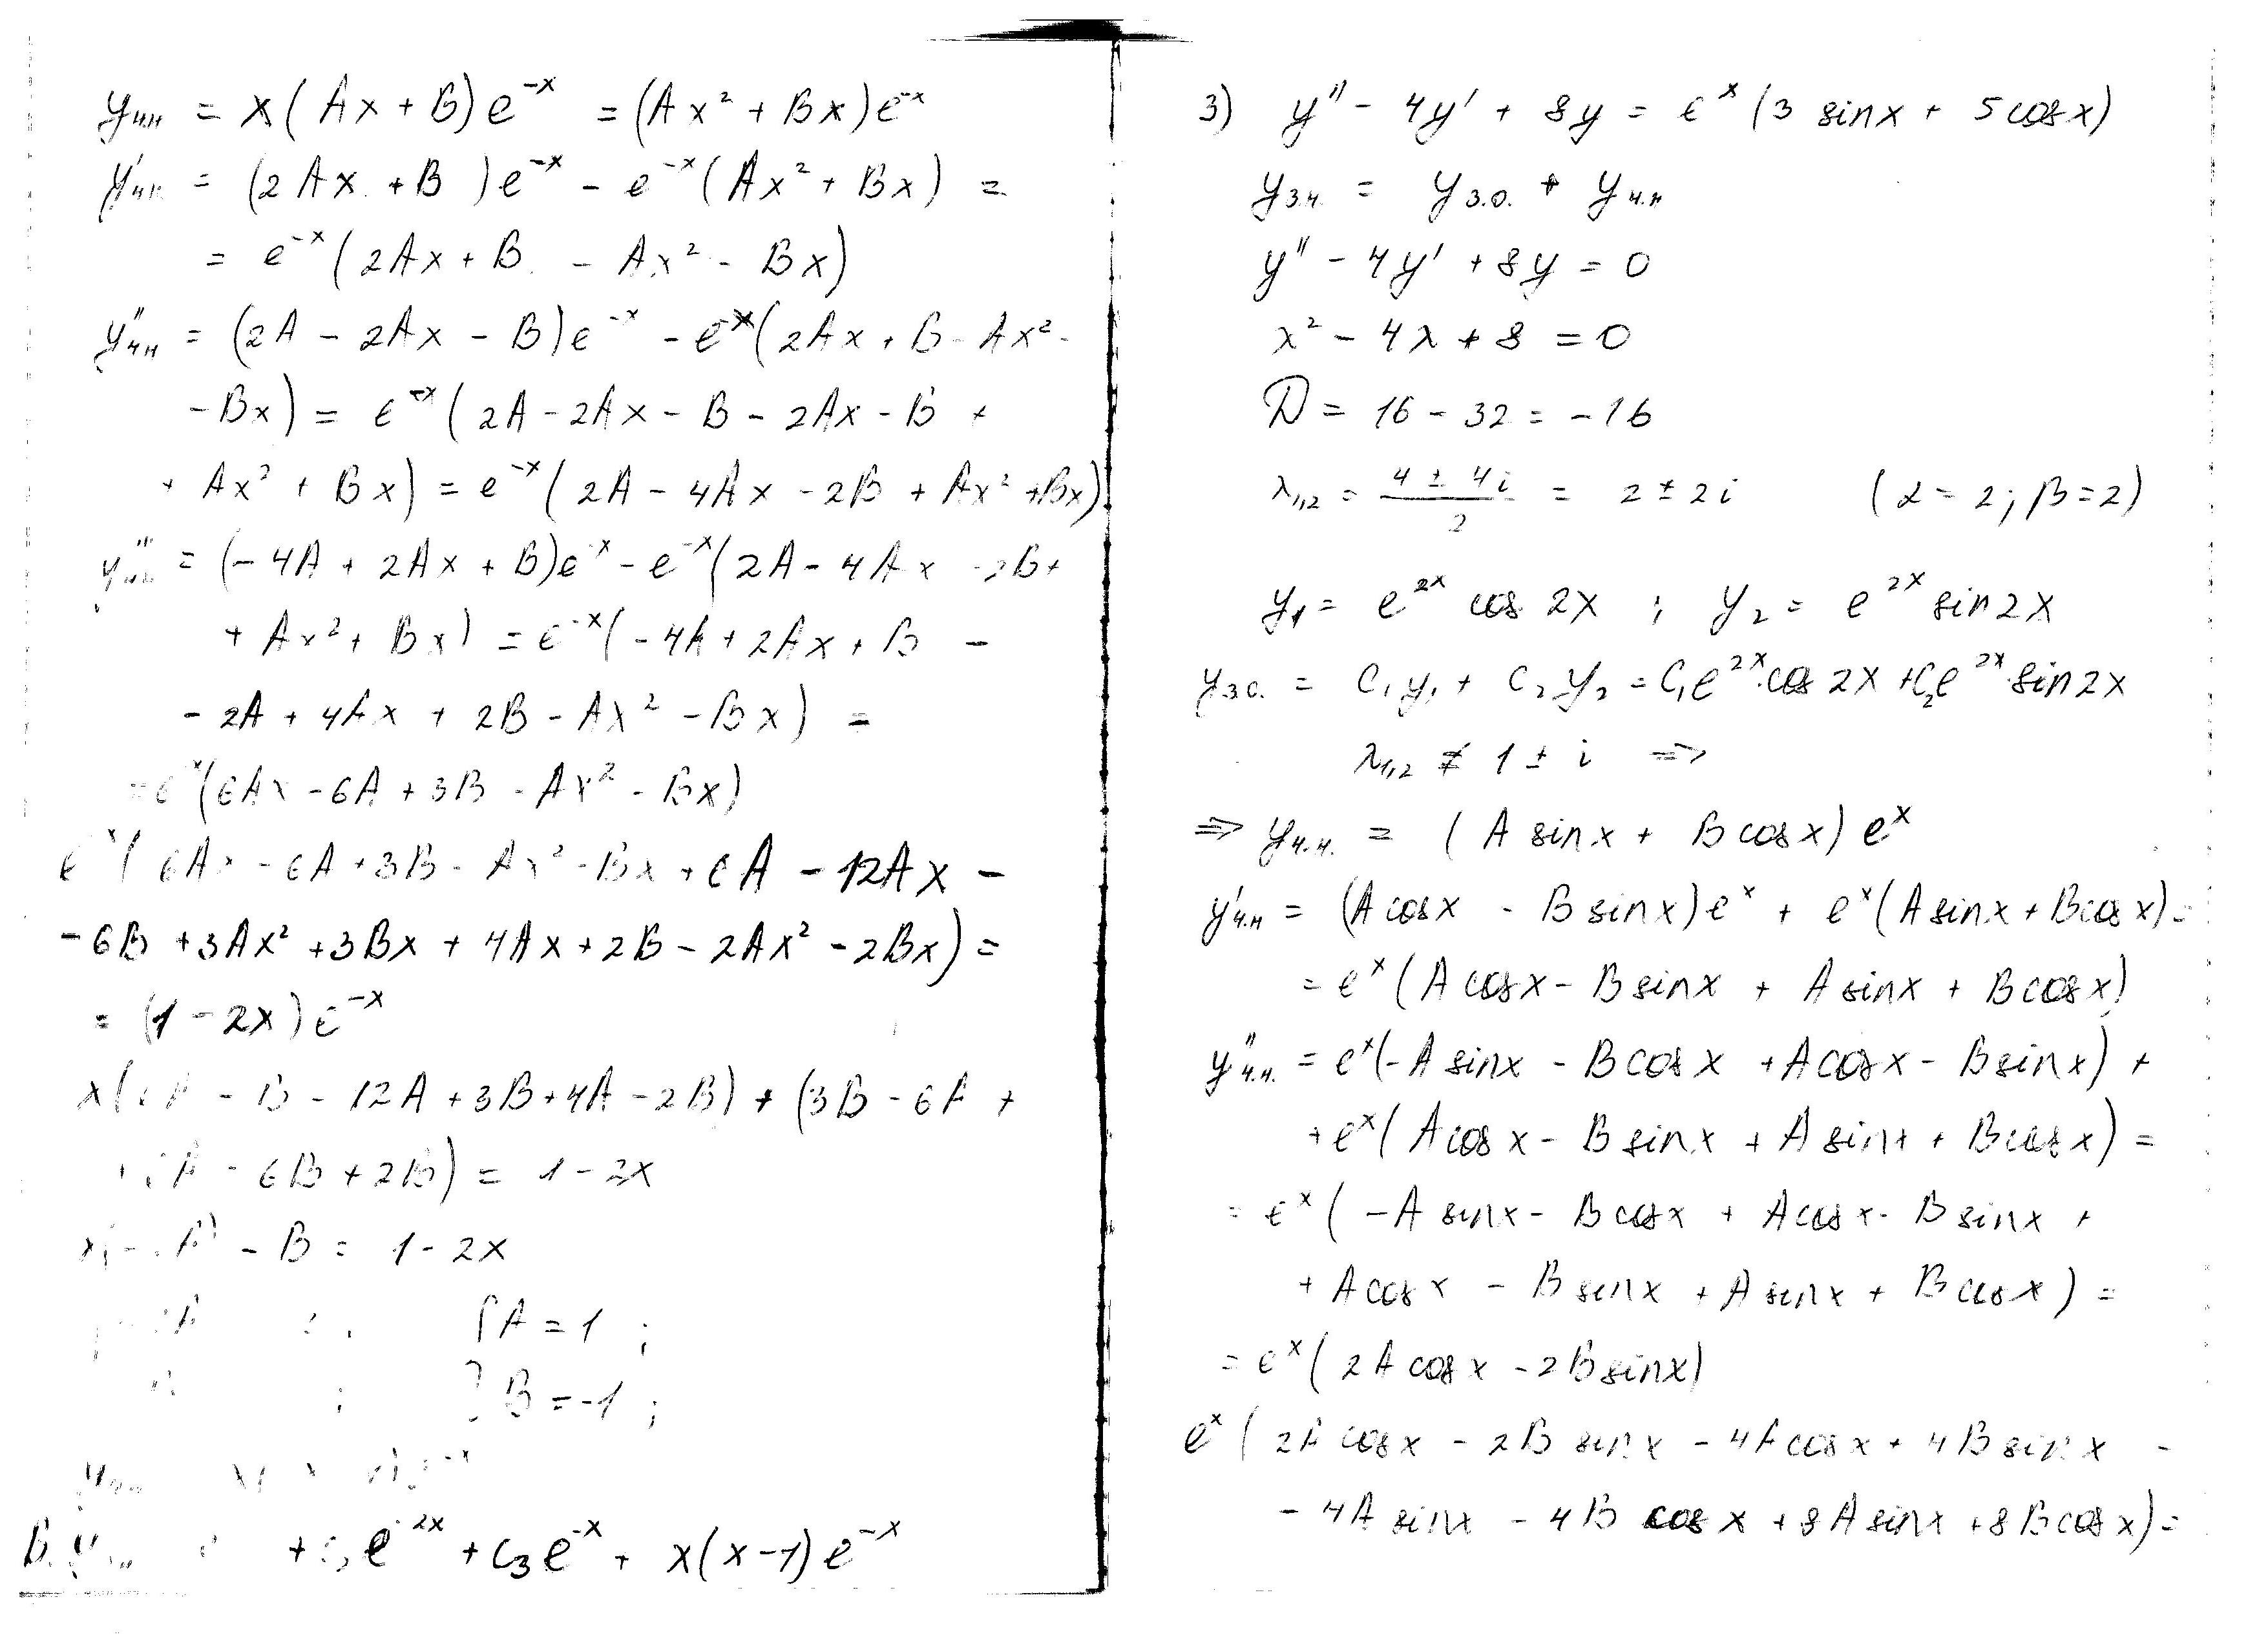 y ч.н = x(Ax + B)e^{-x} = (Ax² + Bx)e^{-x}
y' ч.н = (2Ax + B)e^{-x} - e^{-x}(Ax² + Bx) =
= e^{-x}(2Ax + B - Ax² - Bx)
y'' ч.н = (2A - 2Ax - B)e^{-x} - e^{-x}(2Ax + B - Ax² -
- Bx) = e^{-x}(2A - 2Ax - B - 2Ax - B +
+ Ax² + Bx) = e^{-x}(2A - 4Ax - 2B + Ax² + Bx)
y''' ч.н = (-4A + 2Ax + B)e^{-x} - e^{-x}(2A - 4Ax - 2B +
+ Ax² + Bx) = e^{-x}(-4A + 2Ax + B -
- 2A + 4Ax + 2B - Ax² - Bx) =
= e^{-x}(6Ax - 6A + 3B - Ax² - Bx)
e^{-x}(6Ax - 6A + 3B - Ax² - Bx + 6A - 12Ax -
- 6B + 3Ax² + 3Bx + 4Ax + 2B - 2Ax² - 2Bx) =
= (1 - 2x)e^{-x}
x(6A - B - 12A + 3B + 4A - 2B) + (3B - 6A +
+ 6A - 6B + 2B) = 1 - 2x
- B = 1 - 2x
{ A = 1 ;
B = -1 ;
y ч.н
+ c₂e^{2x} + c₃e^{-x} + x(x-1)e^{-x}
3) y'' - 4y' + 8y = e^x (3 sinx + 5 cosx)
y з.н. = y з.о. + y ч.н
y'' - 4y' + 8y = 0
λ² - 4λ + 8 = 0
D = 16 - 32 = -16
λ₁,₂ = (4 ± 4i)/2 = 2 ± 2i (α = 2; β = 2)
y₁ = e^{2x} cos 2x ; y₂ = e^{2x} sin 2x
y з.о. = C₁y₁ + C₂y₂ = C₁e^{2x}·cos 2x + C₂e^{2x}·sin 2x
λ₁,₂ ≠ 1 ± i ⇒
⇒ y ч.н. = (A sinx + B cosx) e^x
y' ч.н = (A cosx - B sinx)e^x + e^x(A sinx + B cosx) =
= e^x (A cosx - B sinx + A sinx + B cosx)
y'' ч.н. = e^x(-A sinx - B cosx + A cosx - B sinx) +
+ e^x(A cosx - B sinx + A sinx + B cosx) =
= e^x (-A sinx - B cosx + A cosx - B sinx +
+ A cosx - B sinx + A sinx + B cosx) =
= e^x (2A cosx - 2B sinx)
e^x (2A cosx - 2B sinx - 4A cosx + 4B sinx -
- 4A sinx - 4B cosx + 8A sinx + 8B cosx) =